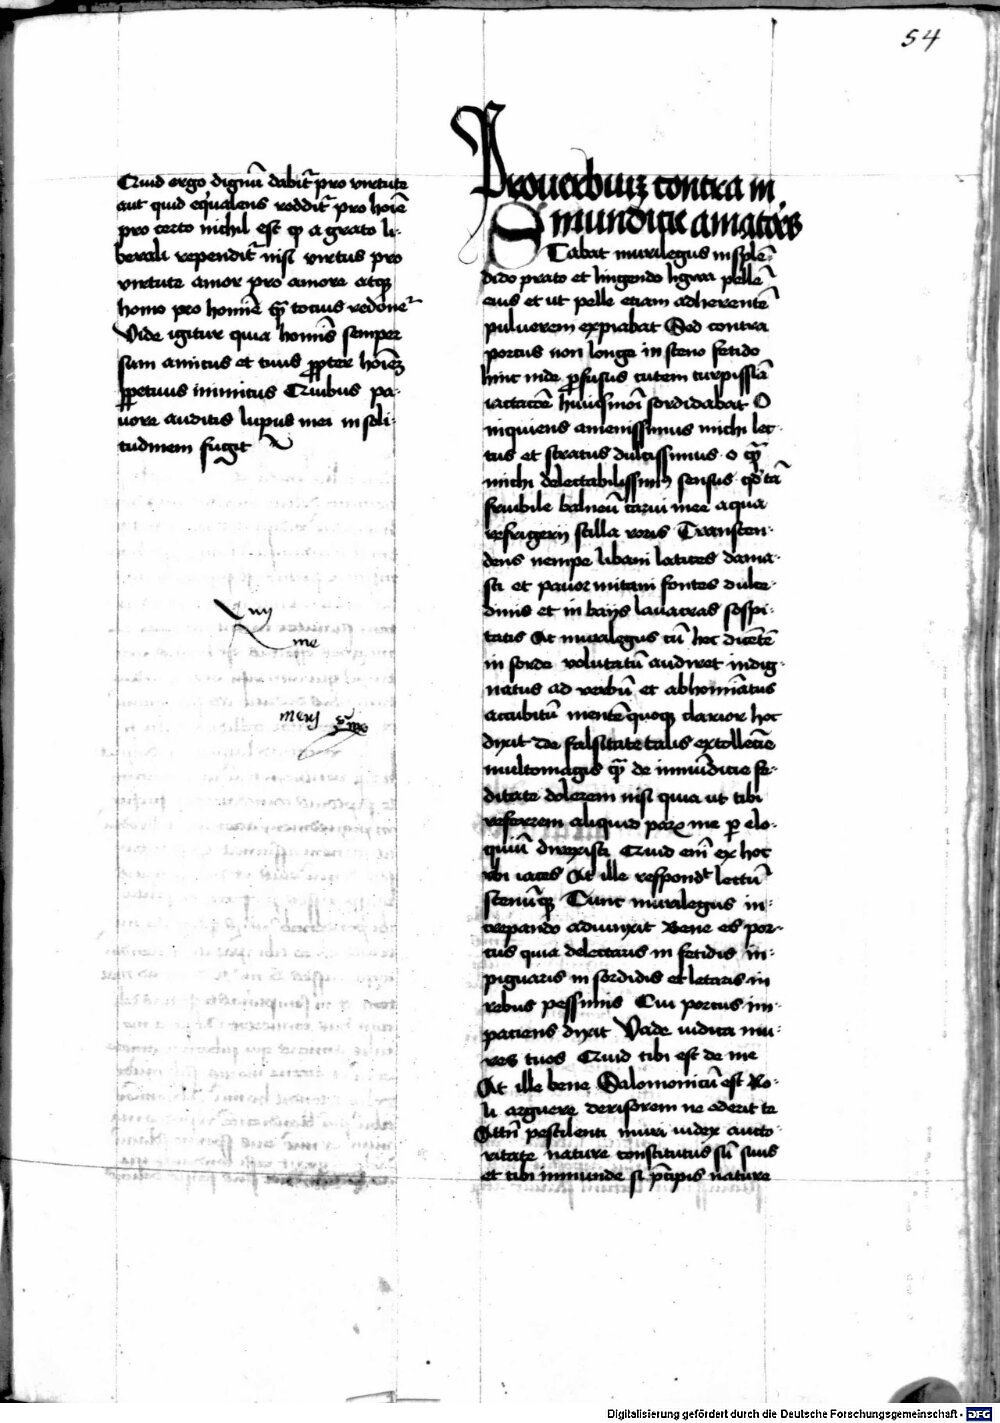 54
Quid ergo dignũ dabit᷑ pro virtute
aut quid equalens reddit᷑ pro hoiẽ
pro certo nichil est qͥ a grato li-
berali rependit᷑ nisi virtus pro
virtute amor pro amore atqꝫ
homo pro homiẽ qᷓ totius redõne᷑
Vide igitur quia homĩs semper
sum amicus et tuus ꝓpter hoiẽꝫ
ꝑpetuus inimicus Quibus pa-
uore auditis lupus mei in soli-
tudinem fugit
me
Prouerbiuꝫ contra in
mundicie amatores
Stabat murilegus in splẽ-
dido prato et lingendo ligwa pellẽ
eius et ut pelle etiam adherentẽ
puluerem expiabat Sed contra
porcus non longe in steno fetido
hinc inde ꝑfusus cutem turpissiã
iactacõe huiusmoĩ sordidabat O
inquiens amenissimus michi lec-
tus et stratus dulcissimus o qᷓ
michi delectabilissimꝰ sensus qͩ tã
fruibile balneũ carni mee aqua
refrigerii stilla roris Transcen-
dens nempe libani latices dama-
sci et panormitani fontes dulce-
dinis et in baiis lauacras sospi-
tatis At murilegus cũ hec dicẽtẽ
in sorde volutatũ audiret indig-
natus ad verbũ et abhomiatus
accubitũ mentẽ quoqꝫ clarior hoc
dixit De falsitate talis extollẽcie
multomagis qᷓ de inmũdicie fe-
ditate dolerem nisi quia ut tibi
referrem aliquid parꝫ me ꝑ elo-
quiũ direxisti Quid eni ex hoc
ubi iaces At ille respondͭ lectũ
stenũqꝫ Tunc murilegus in-
crepando adiunxit Bene es por-
cus quia delectaris in fetidis in-
piguaris in sordidis et letaris in
rebus pessimis Cui porcus im-
paciens dixit Vade iudica mu-
res tuos Quid tibi est de me
At ille bene Salomonicũ est No-
li arguere derisorem ne oderit te
Attñ pestilenti muri iudex aucto-
ritate nature constitutus sũ suis
et tibi inmunde si pͥcipis nature
Digitalisierung gefördert durch die Deutsche Forschungsgemeinschaft - DFG